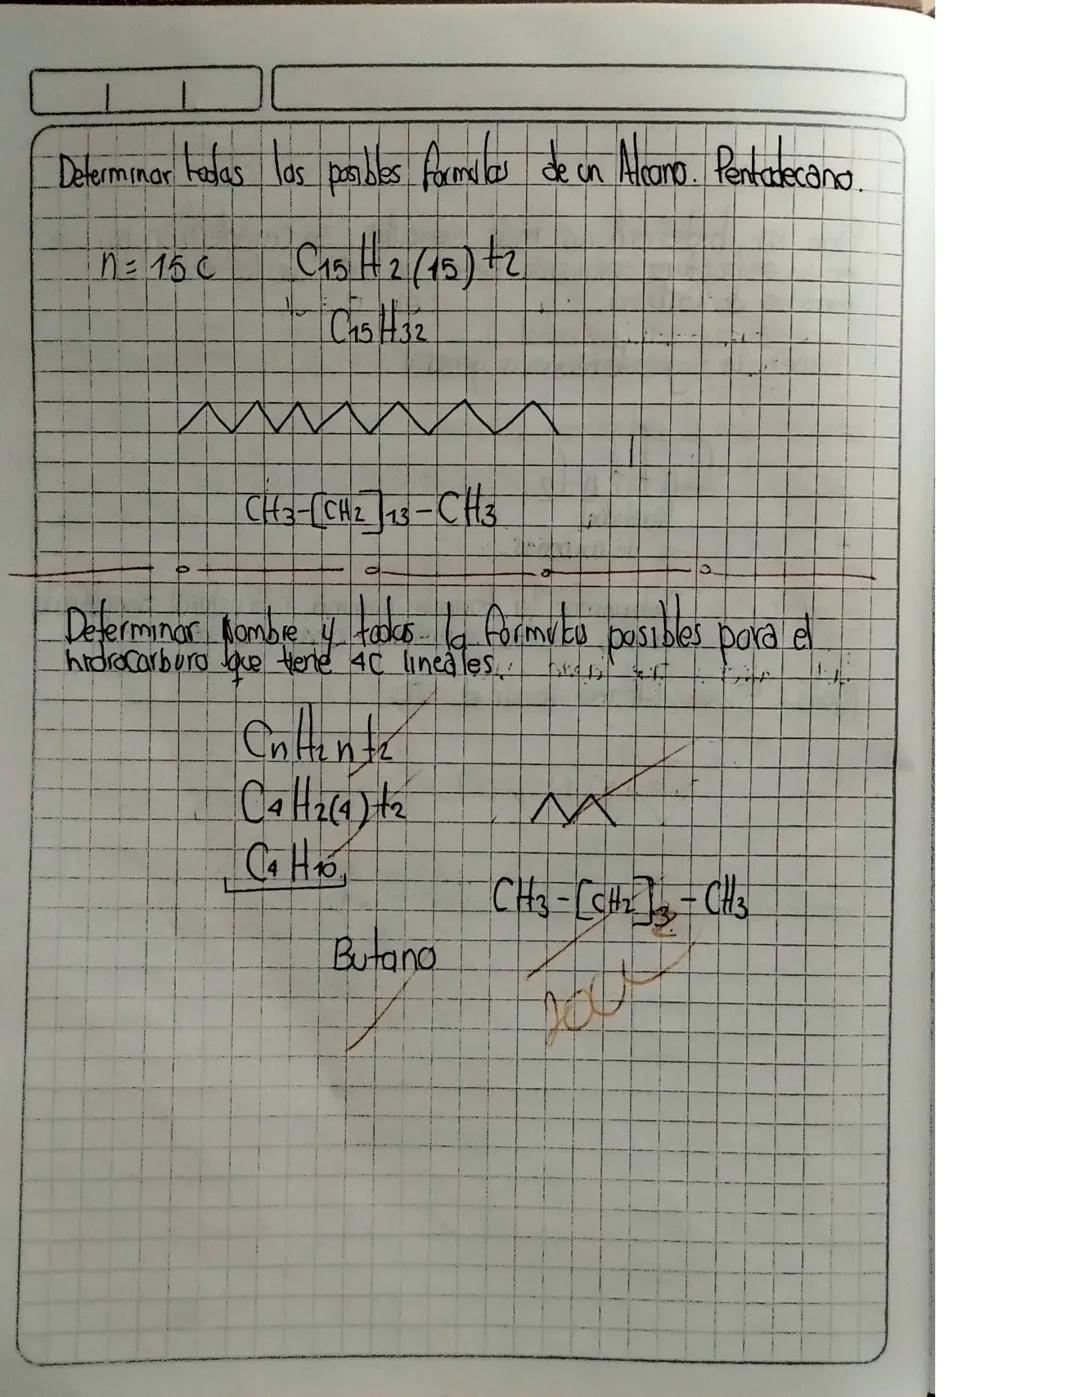 Determinar todas las posibles formulas de un Alcano. Pentadecano.
n= 15 C C15 H2(15)+2
C15H32
CH3-[CH2]13-CH3
Determinar Nombre y todas la formulas posibles para el
hidrocarburo que tiene 4C lineales.
CnH2n+2
C4H2(4)+2
C4H10
CH3-[CH2]2-CH3
Butano